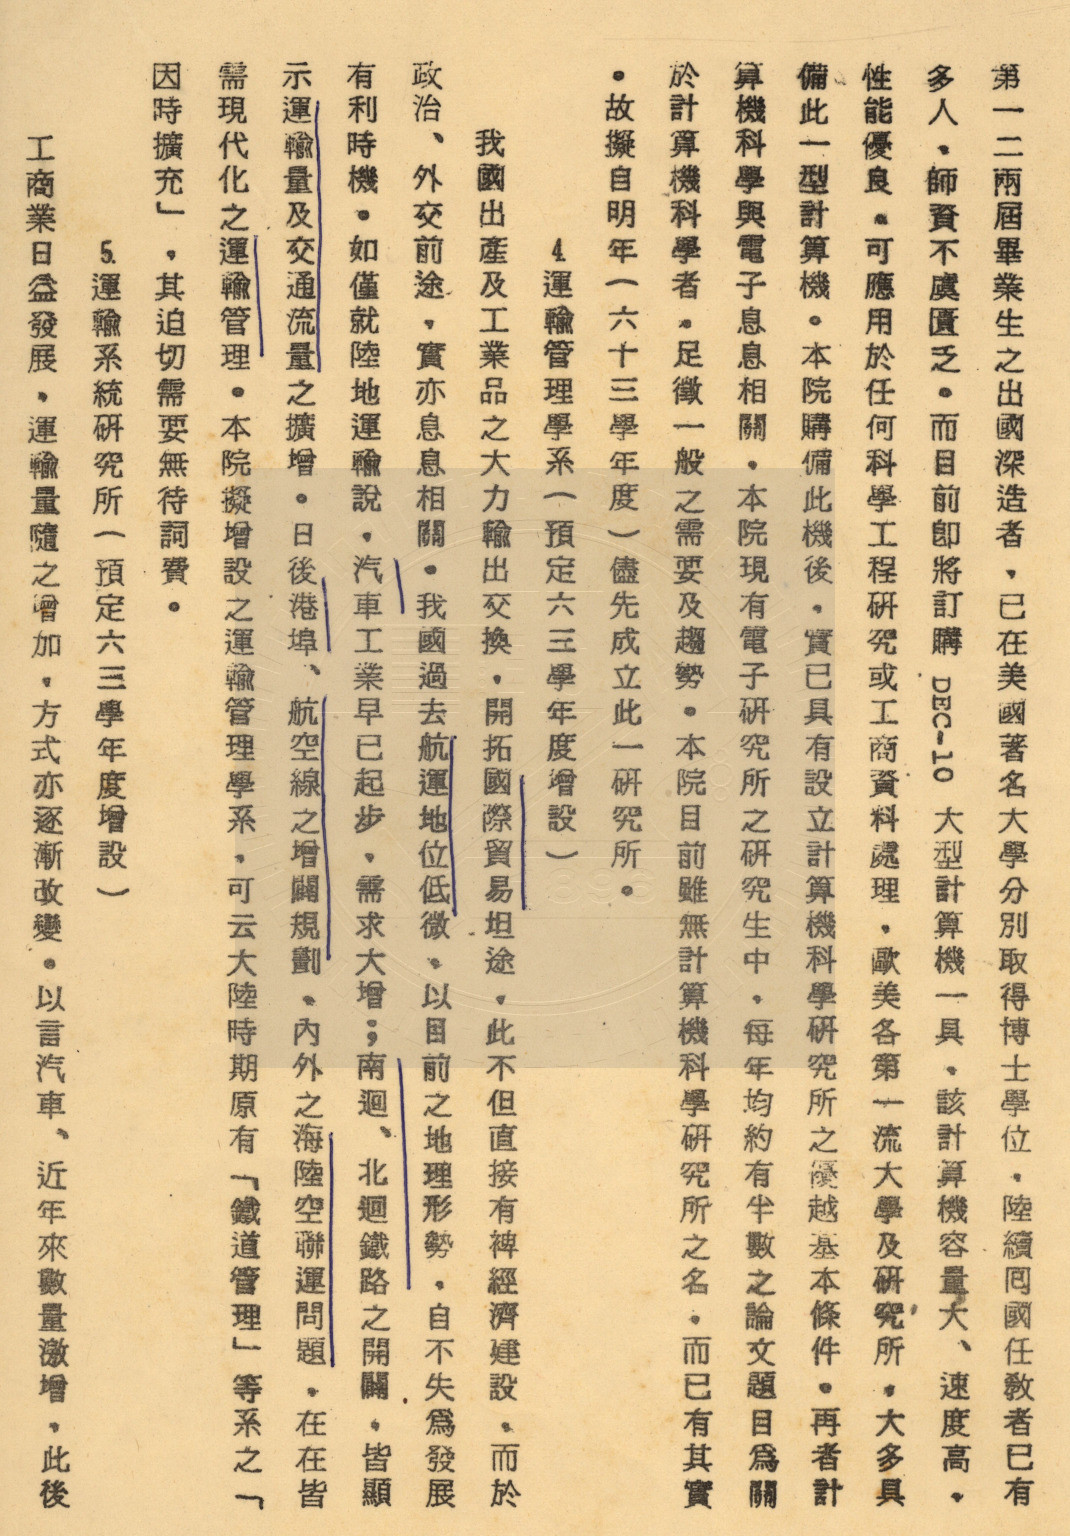 第一二兩屆畢業生之出國深造者，已在美國著名大學分別取得博士學位，陸續囘國任教者已有
多人，師資不虞匱乏。而目前即將訂購 DEC-10 大型計算機一具，該計算機容量大、速度高，
性能優良，可應用於任何科學工程研究或工商資料處理，歐美各第一流大學及研究所，大多具
備此一型計算機。本院購備此機後，實已具有設立計算機科學研究所之優越基本條件。再者計
算機科學與電子息息相關，本院現有電子研究所之研究生中，每年均約有半數之論文題目為關
於計算機科學者，足徵一般之需要及趨勢。本院目前雖無計算機科學研究所之名，而已有其實
。故擬自明年（六十三學年度）儘先成立此一研究所。
4.運輸管理學系（預定六三學年度增設）
我國出產及工業品之大力輸出交換，開拓國際貿易坦途，此不但直接有裨經濟建設，而於
政治、外交前途，實亦息息相關。我國過去航運地位低微，以目前之地理形勢，自不失為發展
有利時機。如僅就陸地運輸說，汽車工業早已起步，需求大增；南迴、北迴鐵路之開闢，皆顯
示運輸量及交通流量之擴增。日後港埠、航空線之增闢規劃，內外之海陸空聯運問題，在在皆
需現代化之運輸管理。本院擬增設之運輸管理學系，可云大陸時期原有「鐵道管理」等系之「
因時擴充」，其迫切需要無待詞費。
5.運輸系統研究所（預定六三學年度增設）
工商業日益發展，運輸量隨之增加，方式亦逐漸改變。以言汽車、近年來數量激增，此後